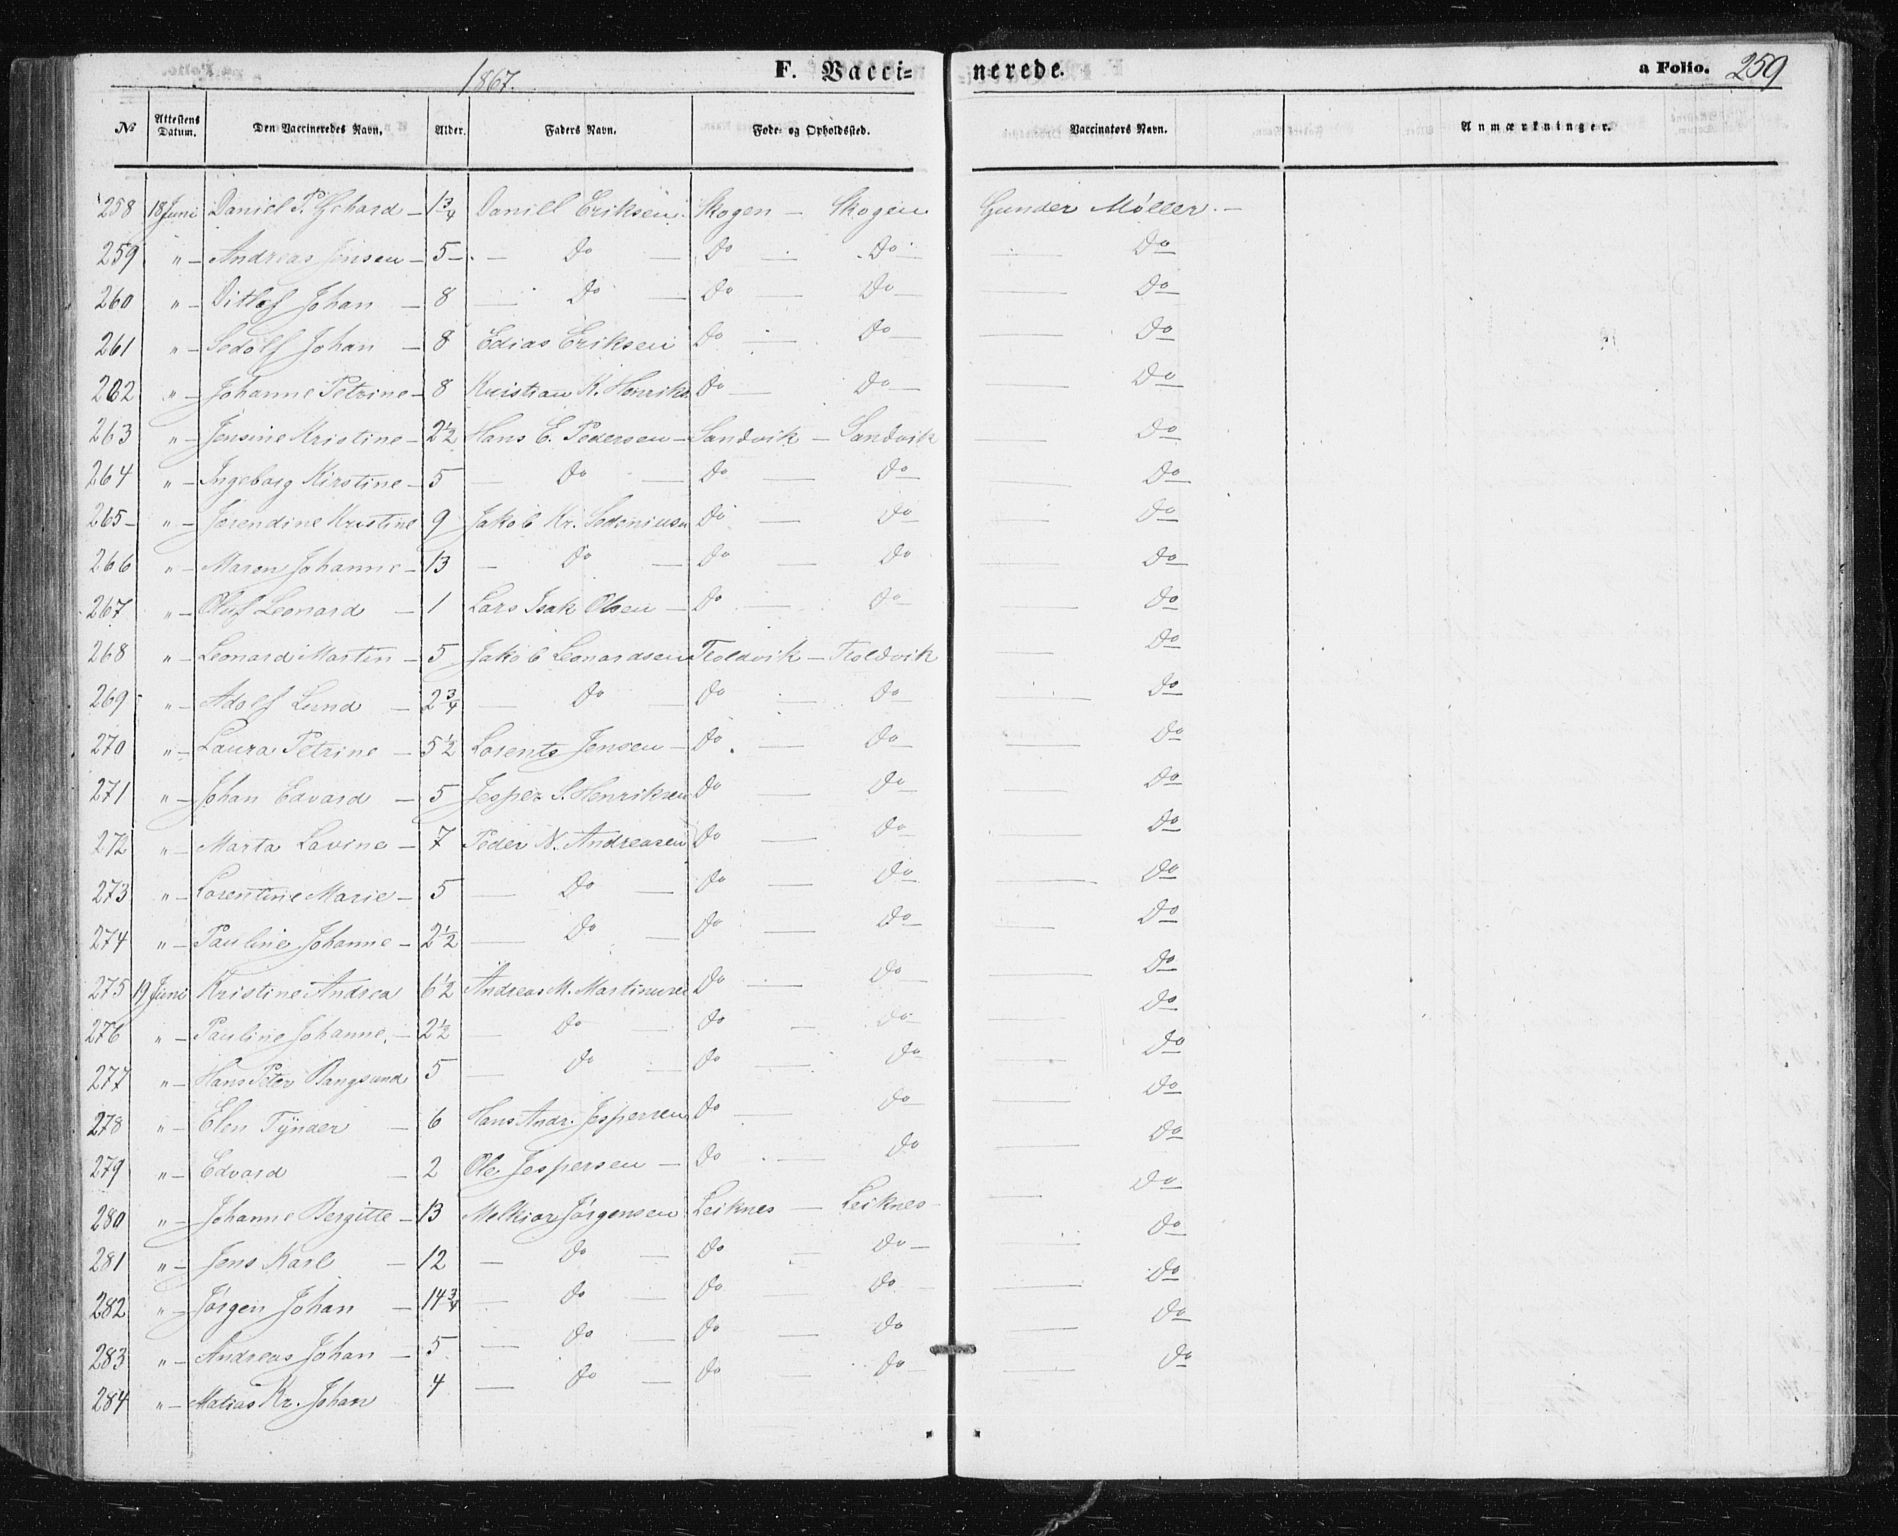 1867. F. Vacci- nerede. a Folio. 259
No Attestens Datum. Den Vaccineredes Navn. Alder. Faders Navn. Føde- og Opholdssted. Vaccinators Navn. Anmærkninger.
258 18 Juni Daniel P. Gerhard – 1 3/4 Daniel Eriksen. Skogen – Skogen Gunder Møller. –
259 " – Andreas Jensen – 5 – Do – Do – Do – Do
260 " – Ditlef Johan – 8 – Do – Do – Do – Do
261 " – Sedolf Johan – 8 Edias Eriksen Do – Do – Do
262 " – Johanne Petrine – 8 Kristian K. Henriks Do – Do – Do
263 " – Jensine Kristine – 2 1/2 Hans E. Pedersen – Sandvik – Sandvik – Do
264 " – Ingeborg Kirstine – 5 – Do – Do – Do – Do
265 – " – Jørendine Kristine 9 Jakob Kr. Sedeniusn Do – Do – Do
266 " – Maren Johanne – 13 – Do – Do – Do – Do
267 " – Oluf Leonard – 1 Lars Isak Olsen – Do – Do – Do
268 " – Leonard Martin – 5 Jakob Leonardsen Troldvik – Troldvik – Do
269 " – Adolf Lund – 2 3/4 – Do – Do – Do – Do
270 " – Laura Petrine – 5 1/2 Lorents Jensen – Do – Do – Do
271 " – Johan Edvard – 5 Jesper S. Henriksen Do – Do – Do
272 " – Marta Lavine – 7 Peder N. Andreasen Do – Do – Do
273 " – Lorentine Marie – 5 – Do – Do – Do – Do
274 " – Pauline Johanne – 2 1/2 – Do – Do – Do – Do
275 19 Juni Kristine Andrea 6 1/2 Andreas M. Martinusen Do – Do – Do
276 " – Pauline Johanne. – 2 1/2 – Do – Do – Do – Do
277 " – Hans Peter Bangsund 5 – Do – Do – Do – Do
278 " – Elen Tÿnder – 6 Hans Andr. Jespersen Do – Do – Do
279 " – Edvard – 2 Ole Jespersen – Do – Do – Do
280 " – Johanne Bergitte – 13 Melkior Jørgensen Leiknes – Leiknes – Do
281 " – Jens Karl – 12 – Do – Do – Do – Do
282 " – Jørgen Johan – 14 3/4 – Do – Do – Do – Do
283 " – Andreas Johan – 5 – Do – Do – Do – Do
284 " – Matias Kr. Johan 4 – Do – Do – Do – Do